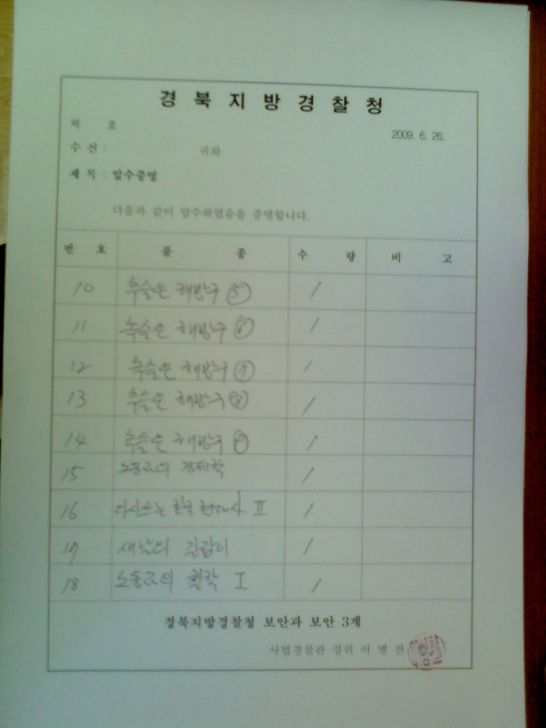 경북지방경찰청
제 호
2009. 6. 26.
수 신 : 귀하
제 목 : 압수증명
다음과 같이 압수하였음을 증명합니다.
번 호 품 종 수 량 비 고
10 녹슬은 해방구 ⑤ 1
11 녹슬은 해방구 ⑥ 1
12 녹슬은 해방구 ⑦ 1
13 녹슬은 해방구 ⑧ 1
14 녹슬은 해방구 ⑨ 1
15 노동자의 경제학 1
16 다시쓰는 한국 현대사 Ⅱ 1
17 새낫의 길잡이 1
18 노동자의 철학 Ⅰ 1
경북지방경찰청 보안과 보안 3계
사법경찰관 경위 이 명 찬